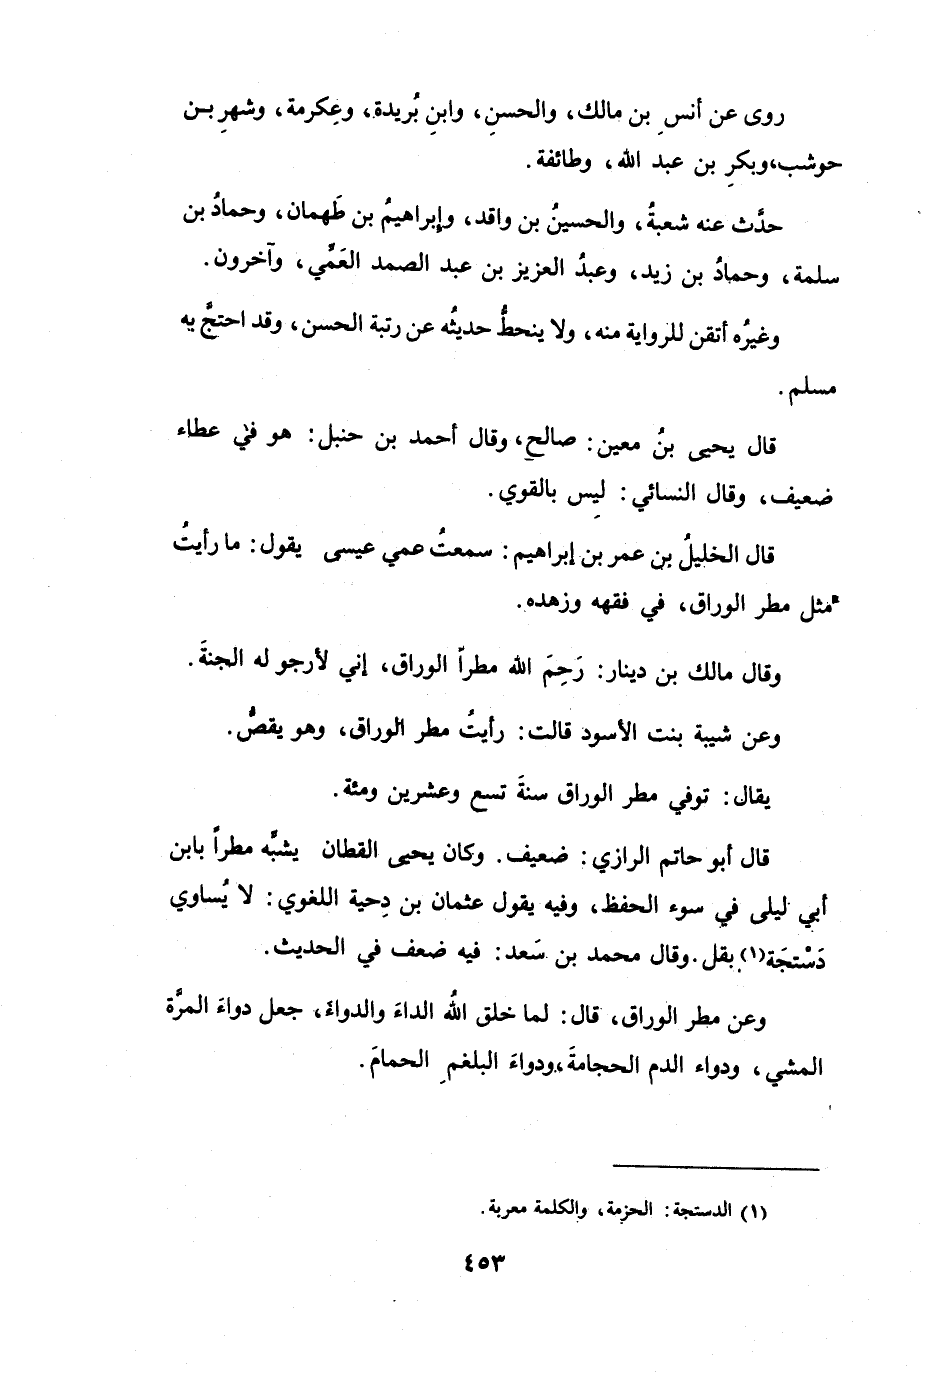 روى عن أنسِ بن مالك، والحسنِ، وابنِ بُريدة، وعِكرمة، وشهرِ بن
حوشب، وبكرِ بن عبد الله، وطائفة.
حدَّث عنه شعبةُ، والحسينُ بن واقد، وإبراهيمُ بن طَهمان، وحمادُ بن
سلمة، وحمادُ بن زيد، وعبدُ العزيز بن عبد الصمد العَمِّي، وآخرون.
وغيرُه أتقن للرواية منه، ولا ينحطُّ حديثُه عن رتبة الحسن، وقد احتجَّ به
مسلم.
قال يحيى بنُ معين: صالح، وقال أحمد بن حنبل: هو في عطاء
ضعيف، وقال النسائي: ليس بالقوي.
قال الخليلُ بن عمر بن إبراهيم: سمعتُ عمي عيسى يقول: ما رأيتُ
مثل مطر الوراق، في فقهه وزهده.
وقال مالك بن دينار: رَحِمَ الله مطراً الوراق، إني لأرجو له الجنةَ.
وعن شيبة بنت الأسود قالت: رأيتُ مطر الوراق، وهو يقصُّ.
يقال: توفي مطر الوراق سنةَ تسع وعشرين ومئة.
قال أبو حاتم الرازي: ضعيف. وكان يحيى القطان يشبِّه مطراً بابن
أبي ليلى في سوء الحفظ، وفيه يقول عثمان بن دِحية اللغوي: لا يُساوي
دَسْتَجَة(١) بقل. وقال محمد بن سَعد: فيه ضعف في الحديث.
وعن مطر الوراق، قال: لما خلق اللهُ الداءَ والدواءَ، جعل دواءَ المرَّة
المشي، ودواء الدم الحجامةَ، ودواءَ البلغمِ الحمامَ.
(١) الدستجة: الحزمة، والكلمة معربة.
٤٥٣